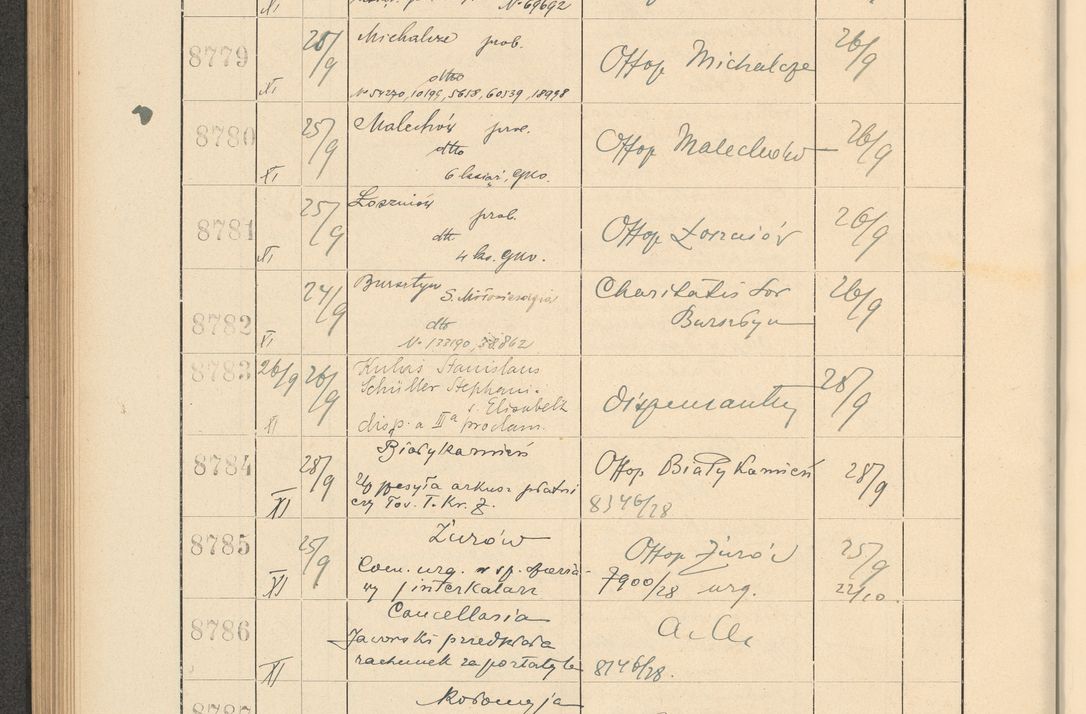 XI № 69692
8779 XI 25/9 Michalcze prob. Offop Michalcze 26/9
dtto
№ 54270, 10194, 5658, 60539, 18998
8780 XI 25/9 Malechów prob. Offop Malechów 26/9
dtto
6 książ. gko.
8781 XI 25/9 Łoszniów prob. Offop Łoszniów 26/9
dtto
4 ks. gko.
8782 XI 24/9 Bursztyn S. Miłosierdzia Charitatis Sor 26/9
Bursztyn
dtto
№ 133190, 58862
8783 XI 26/9 26/9 Stanislaus
Schüller Stephani
s. Elisabeth dispensantur 28/9
disp. a IIa proclam.
8784 XI 28/9 Białykamień Offop Białykamień 28/9
arkusz płatni
czy Tow. T. Kr. Z. 8346/28
8785 XI 25/9 Żurów Offop Żurów 25/9
urg. w sp.
interkalarz 7900/28 urg. 22/10
8786 XI Cancellaria a. a.
Jaworski przedkłada
rachunek za portatyle 8146/28.
8787 Kołomyja